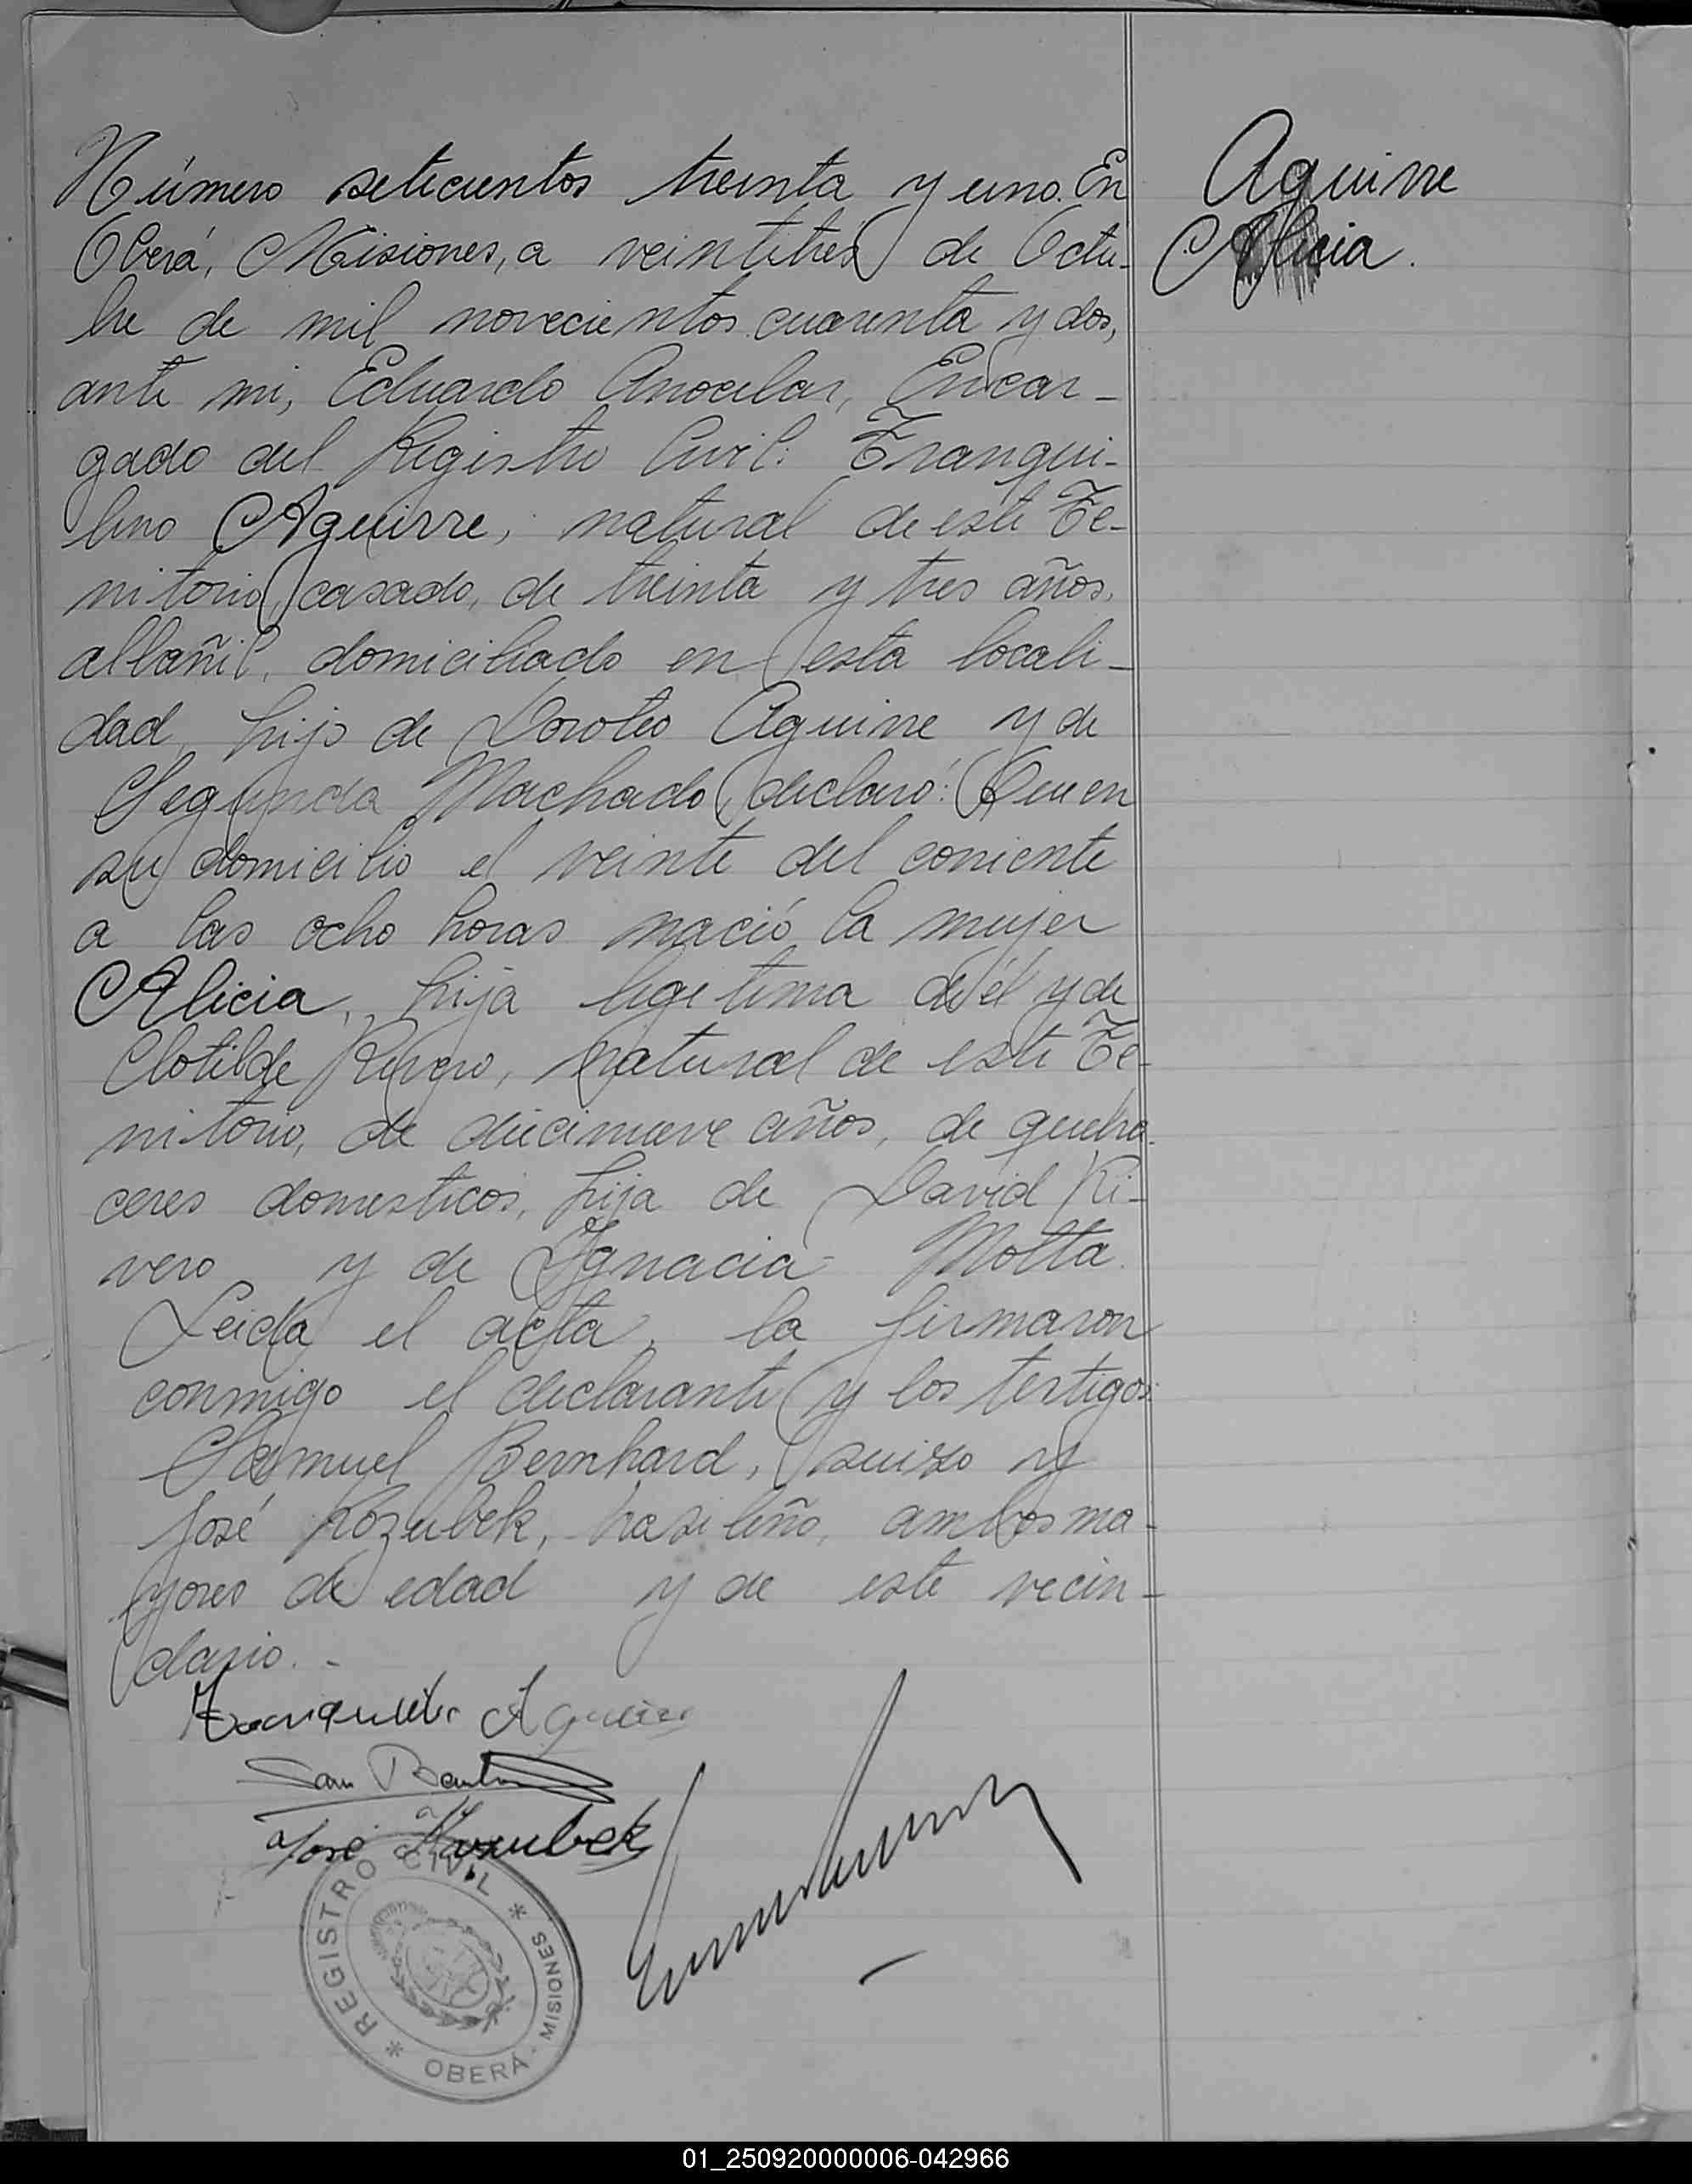 Número setecientos treinta y uno. En
Oberá, Misiones, a veintitres de Octu-
bre de mil novecientos cuarenta y dos,
ante mi, Eduardo Encar-
gado del Registro Civil: Tranqui-
lino Aguirre, natural de este Te-
rritorio, casado, de treinta y tres años,
albañil, domiciliado en esta locali-
dad, hijo de Doroteo Aguirre y de
Segunda Machado, declaró: Que en
su domicilio el veinte del corriente
a las ocho horas nació la mujer
Alicia, hija legitima de él y de
Clotilde Rivero, natural de este Te-
rritorio, de diecinueve años, de queha-
ceres domesticos, hija de David Ri-
vero y de Ignacia Motta.
Leida el acta, la firmaron
conmigo el declarante y los testigos:
Samuel Bernhard, suizo y
José Kozubek, brasileño, ambos ma-
yores de edad y de este vecin-
dario.-
Aguirre
Alicia.
Tranquilino Aguirre
José Kozubek
REGISTRO CIVIL * MISIONES - OBERÁ *
01_250920000006-042966